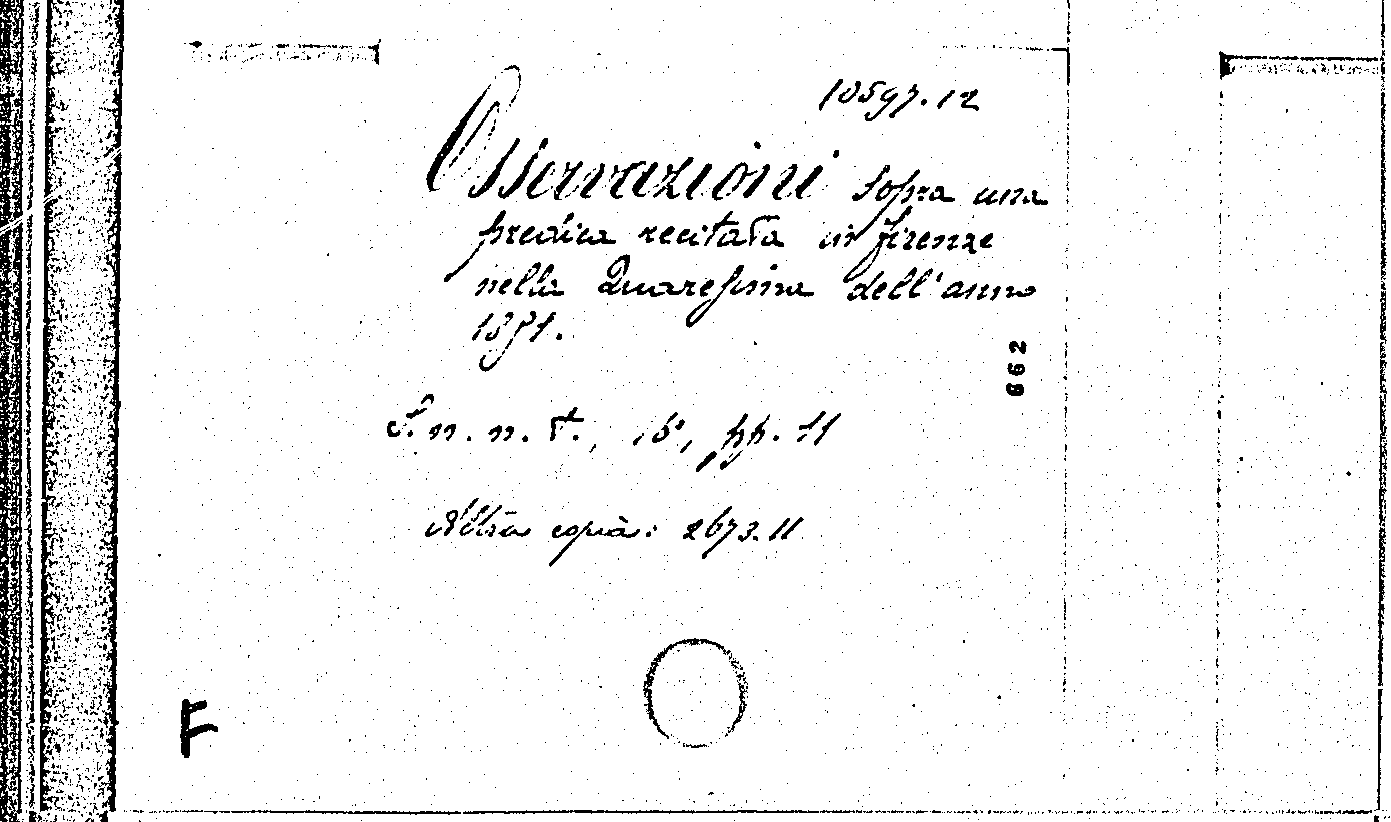 10597.12
Osservazioni sopra una
predica recitata in Firenze
nella Quaresima dell'anno
18
S. n. n. t., 16°, pp. 11
Altra copia: 2673.11
662
F